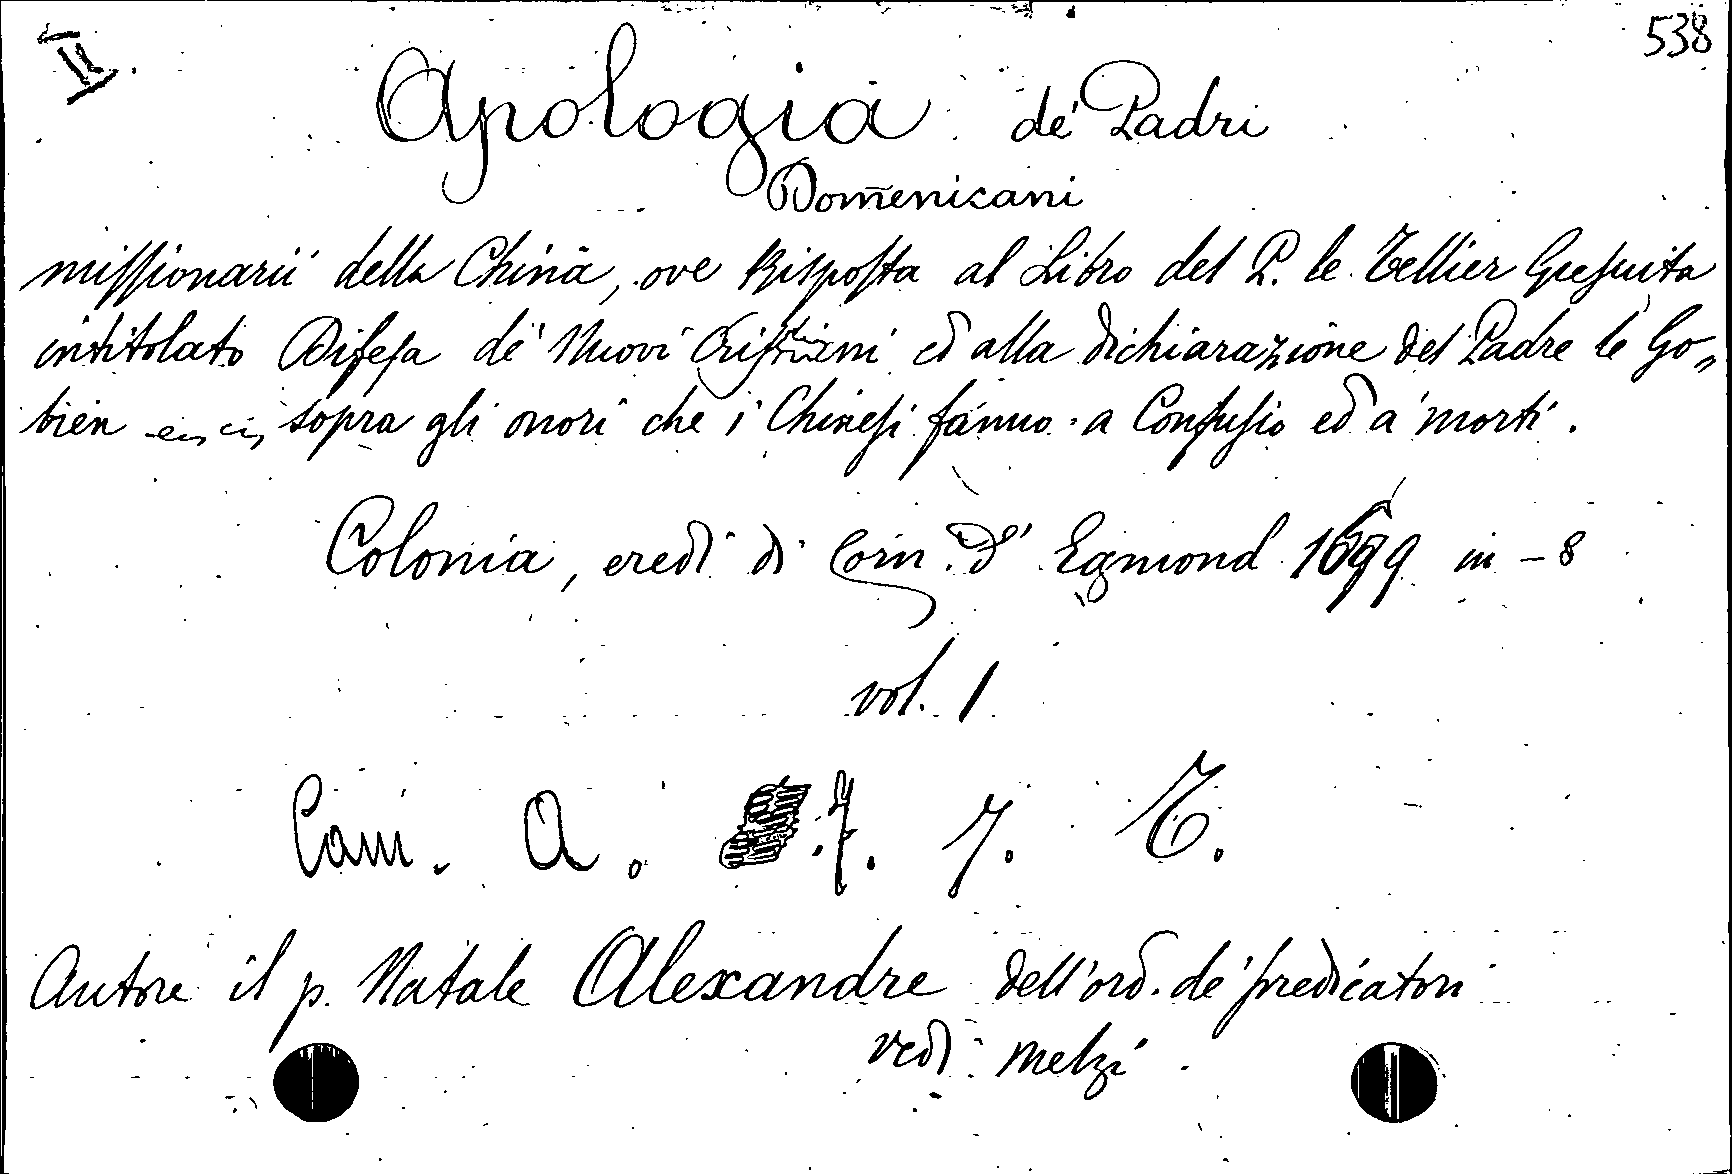 II. 538
Apologia de' Padri
Domenicani
missionarii della China, ove Risposta al Libro del P. le Tellier Giesuita
intitolato Difesa de' Nuovi Cristiani ed alla dichiarazione del Padre le Go„
bien sopra gli onori che i Chinesi fanno a Confusio ed a' morti.
Colonia, eredi di Corn. d' Egmond 1699 in-8
vol. 1
Cam. A. 7. T.
Autore il p. Natale Alexandre dell'ord. de' predicatori
vedi Melzi